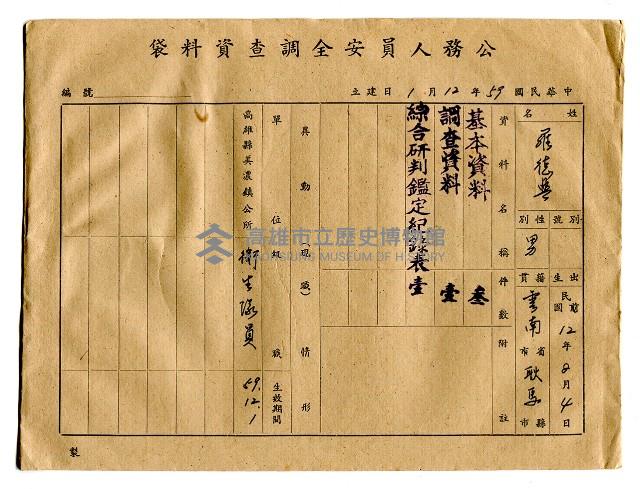 公務人員安全調查資料袋
中華民國59年12月1日建立
編號
姓名
羅德興
別號
性別
男
出生
民前
國12年8月4日
籍貫
雲南省市
耿馬縣市
資料名稱
件數
附註
基本資料 叁
調查資料 壹
綜合研判鑑定紀錄表 壹
異動(現職)情形
單位級職
生效期間
高雄縣美濃鎮公所 衛生隊員
59.12.1
製
高雄市立歷史博物館
KAOHSIUNG MUSEUM OF HISTORY